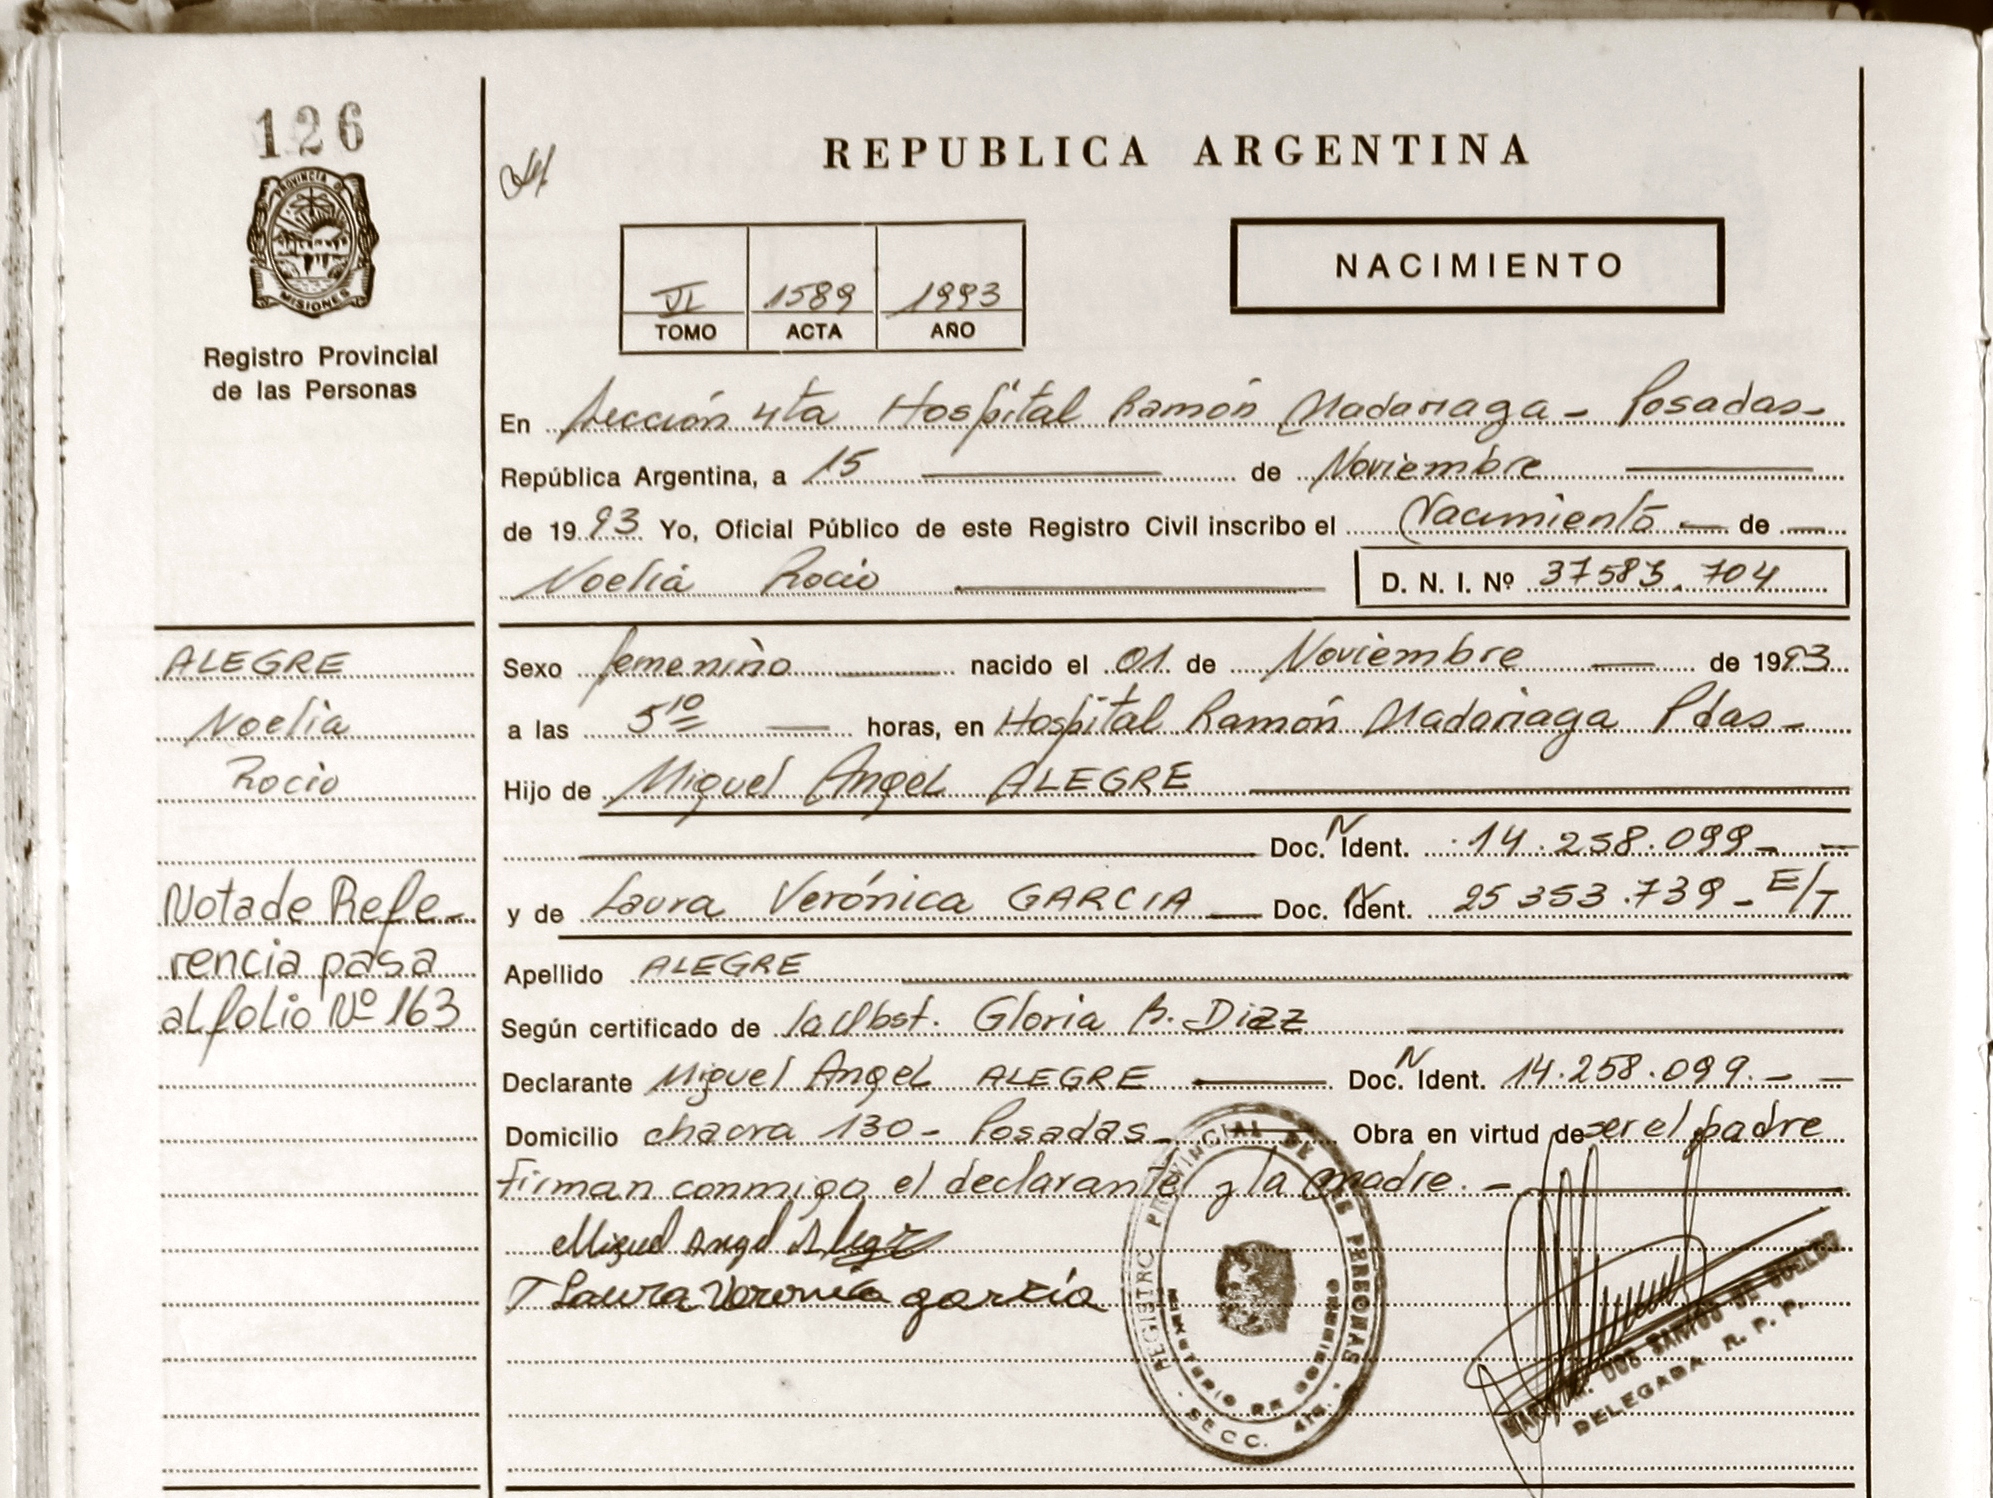 126
PROVINCIA DE
MISIONES
Registro Provincial
de las Personas
REPUBLICA ARGENTINA
NACIMIENTO
VI 1589 1993
TOMO ACTA AÑO
En Sección 4ta Hospital Ramón Madariaga - Posadas-
República Argentina, a 15 de Noviembre
de 1993 Yo, Oficial Público de este Registro Civil inscribo el Nacimiento de
Noelia Rocio D. N. I. Nº 37583.704
ALEGRE
Noelia
Rocio
Nota de Refe-
rencia pasa
al folio Nº 163
Sexo femenino nacido el 01 de Noviembre de 1993
a las 5 10 horas, en Hospital Ramón Madariaga Pdas-
Hijo de Miguel Angel ALEGRE
Doc. N Ident. 14.258.099-
y de Laura Verónica GARCIA Doc. N Ident. 25 353.739- E/T
Apellido ALEGRE
Según certificado de la Obst. Gloria B. Diaz
Declarante Miguel Angel ALEGRE Doc. N Ident. 14.258.099.-
Domicilio chacra 130- Posadas- Obra en virtud de ser el padre
firman conmigo el declarante y la madre.-
Miguel Angel Alegre
Laura Veronica garcía
REGISTRO PROVINCIAL DE LAS PERSONAS
MINISTERIO DE GOBIERNO
SECC. 4ta.
DOS SANTOS DE
DELEGADA R. P. P.